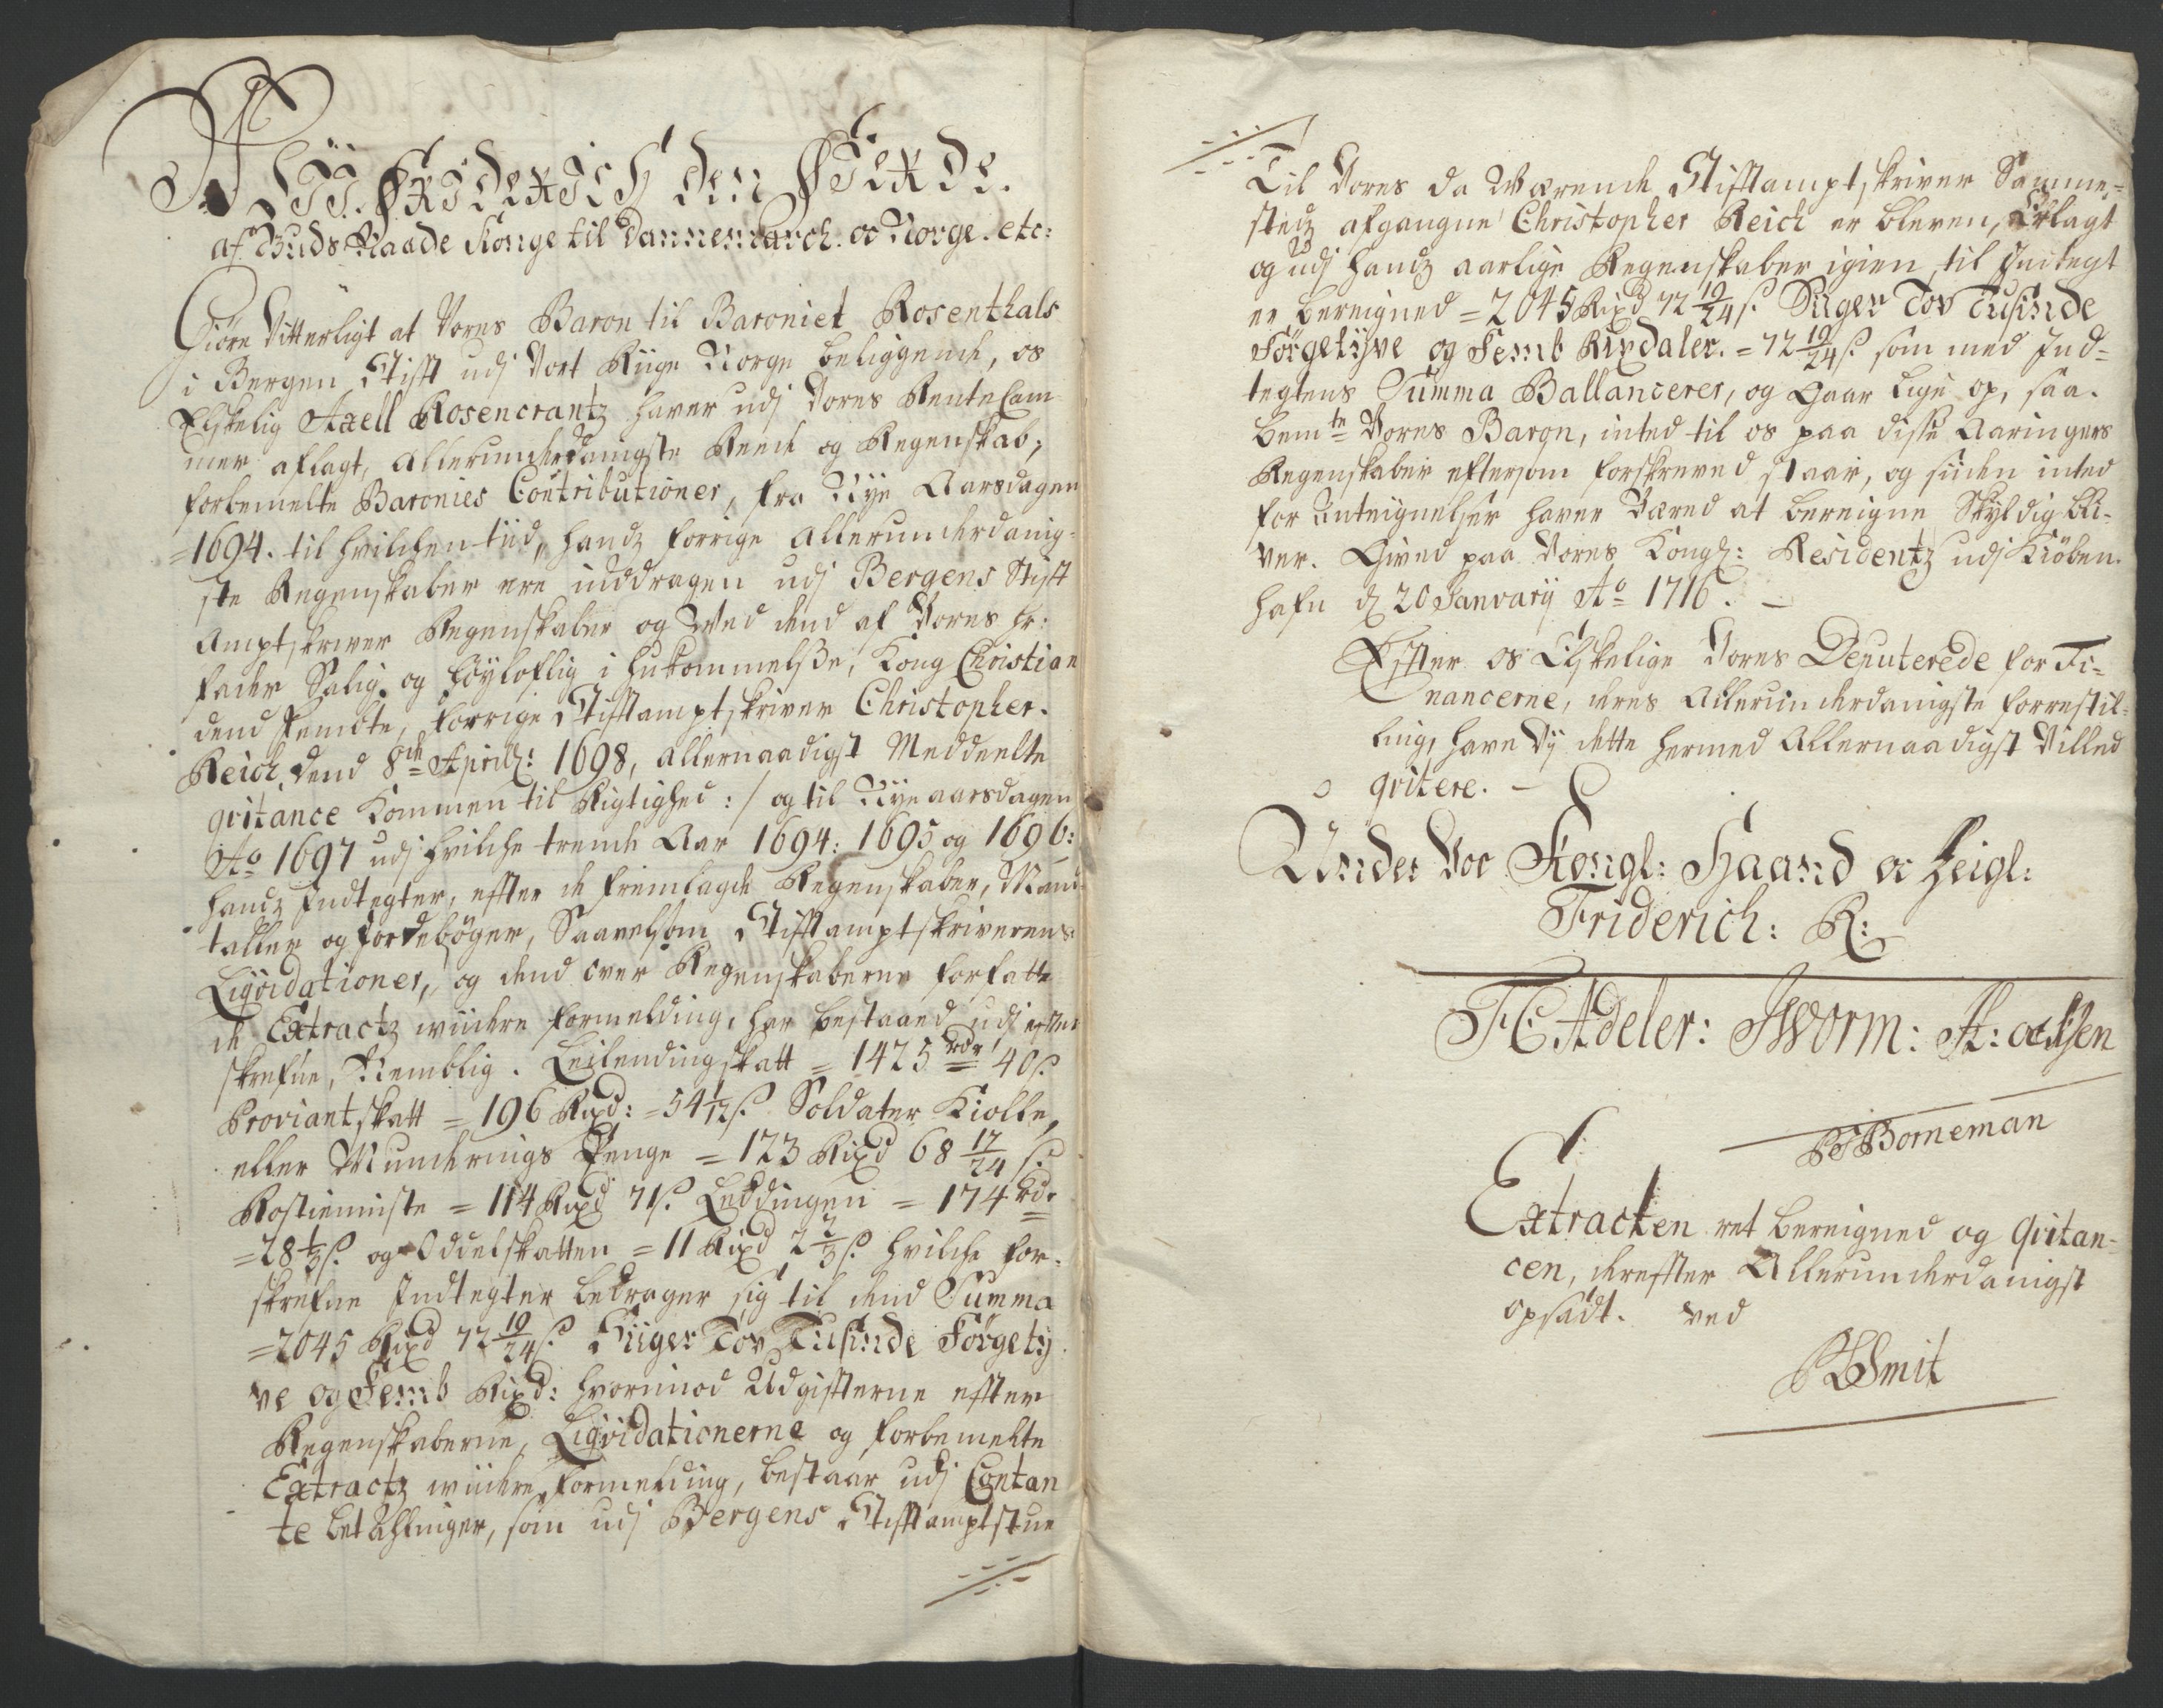 Vii Friderich den Fierde.
af Guds Naade Konge til Dannemarch. oc Norge. etc:
Giöre Vitterligt at Vores Baron til Baroniet Rosenthals
i Bergens Stift udj Vort Riige Norge beliggende, os
Elskelig Axell Rosencrantz haver udj Vores RenteCam-
mer aflagt, allerunderdanigste Reede og Regenskab,
forbemelte Baronies Contributioner, fra Nye Aarsdagen
=1694. til hvilchen tiid, handz forrige allerunderdanig-
ste Regenskaber ere inddragen udj Bergens Stift
Amptskriver Regenskaber og Wed dend af Vores hr:
fader Salig. og höyloflig i hukommelsse, Kong Christian
dend femte, forrige Stifftamptskriver Christopher.
Reich dend 8de Aprilj: 1698, allernaadigst Meddeelte
qvitance Kommen til Rigtighed :/ og til Nye aarsdagen
Ao 1697 udj hvilche trende Aar 1694: 1695 og 1696:
handz Indtegter, effter de fremlagde Regenskaber, Mand-
taller og Jordebøger, Saavelsom Stifftamptskriverens
Liqvidationer, og dend over Regenskaberne forfatte-
de Extractz wiidere formelding, har bestaaed udj effter-
skrefne, Nemblig. Leilendingskatt = 1425 rdr 40 s.
Proviantskatt = 196 Rixd: = 54 1/12 s. Soldater Kiolle,
eller Munderings Penge = 123 Rixd 68 17/24 s.
Rostienniste = 114 Rixd 71 s. Leddingen = 174 Rdr
=28 1/3 s. og Oddelskatten = 11 Rixd 2 2/3 s. hvilche for-
skrefne Indtegter bedrager sig til dend Summa
=2045 Rixd 72 19/24 s. Siiger Tov Tusinde Förgety-
ve og Femb Rixd: hvorimod Udgiffterne effter
Regenskaberne, Liqvidationerne og forbemelte
Extractz wiidere formelding, bestaar udj Contan
te betahlinger, som udj Bergens Stifftamptstue
Til Vores da Værende Stifftamptskriver Samme-
stedz afgangne Christopher Reich er bleven, Erlagt
og udj handz aarlige Regenskaber igien til Indtegt
er bereigned = 2045 Rixd 72 19/24 s. Siiger Tov Tusinde
Förgetyve og Femb Rixdaler. = 72 19/24 s. som med Ind-
tegtens Summa Ballancerer, og Gaar lige op, saa.
bemte Vores Baron, inted til os paa disse Aaringers
Regenskaber eftersom forskreved staar, og siiden inted
for Anteignelser haver Været at bereigne Skyldig bli-
ver. Gived paa Vores Kongl: Residentz udj Kiöben-
hafn d 20 Janvarij Ao 1716. –
Effter os Elskelige Vores Deputerede for Fi-
nancerne, deres Allerunderdanigste forrestil-
ling, have Vij dette hermed Allernaadigst Villed
qvitere. –
Under Vor Kongl: Haand oc Zeigl:
Friderich: R:
FC Adeler: JWorm:
Borneman
Extracten ret bereigned og Qvitan-
cen, dereffter Allerunderdanigst
opsadt. ved
Smit